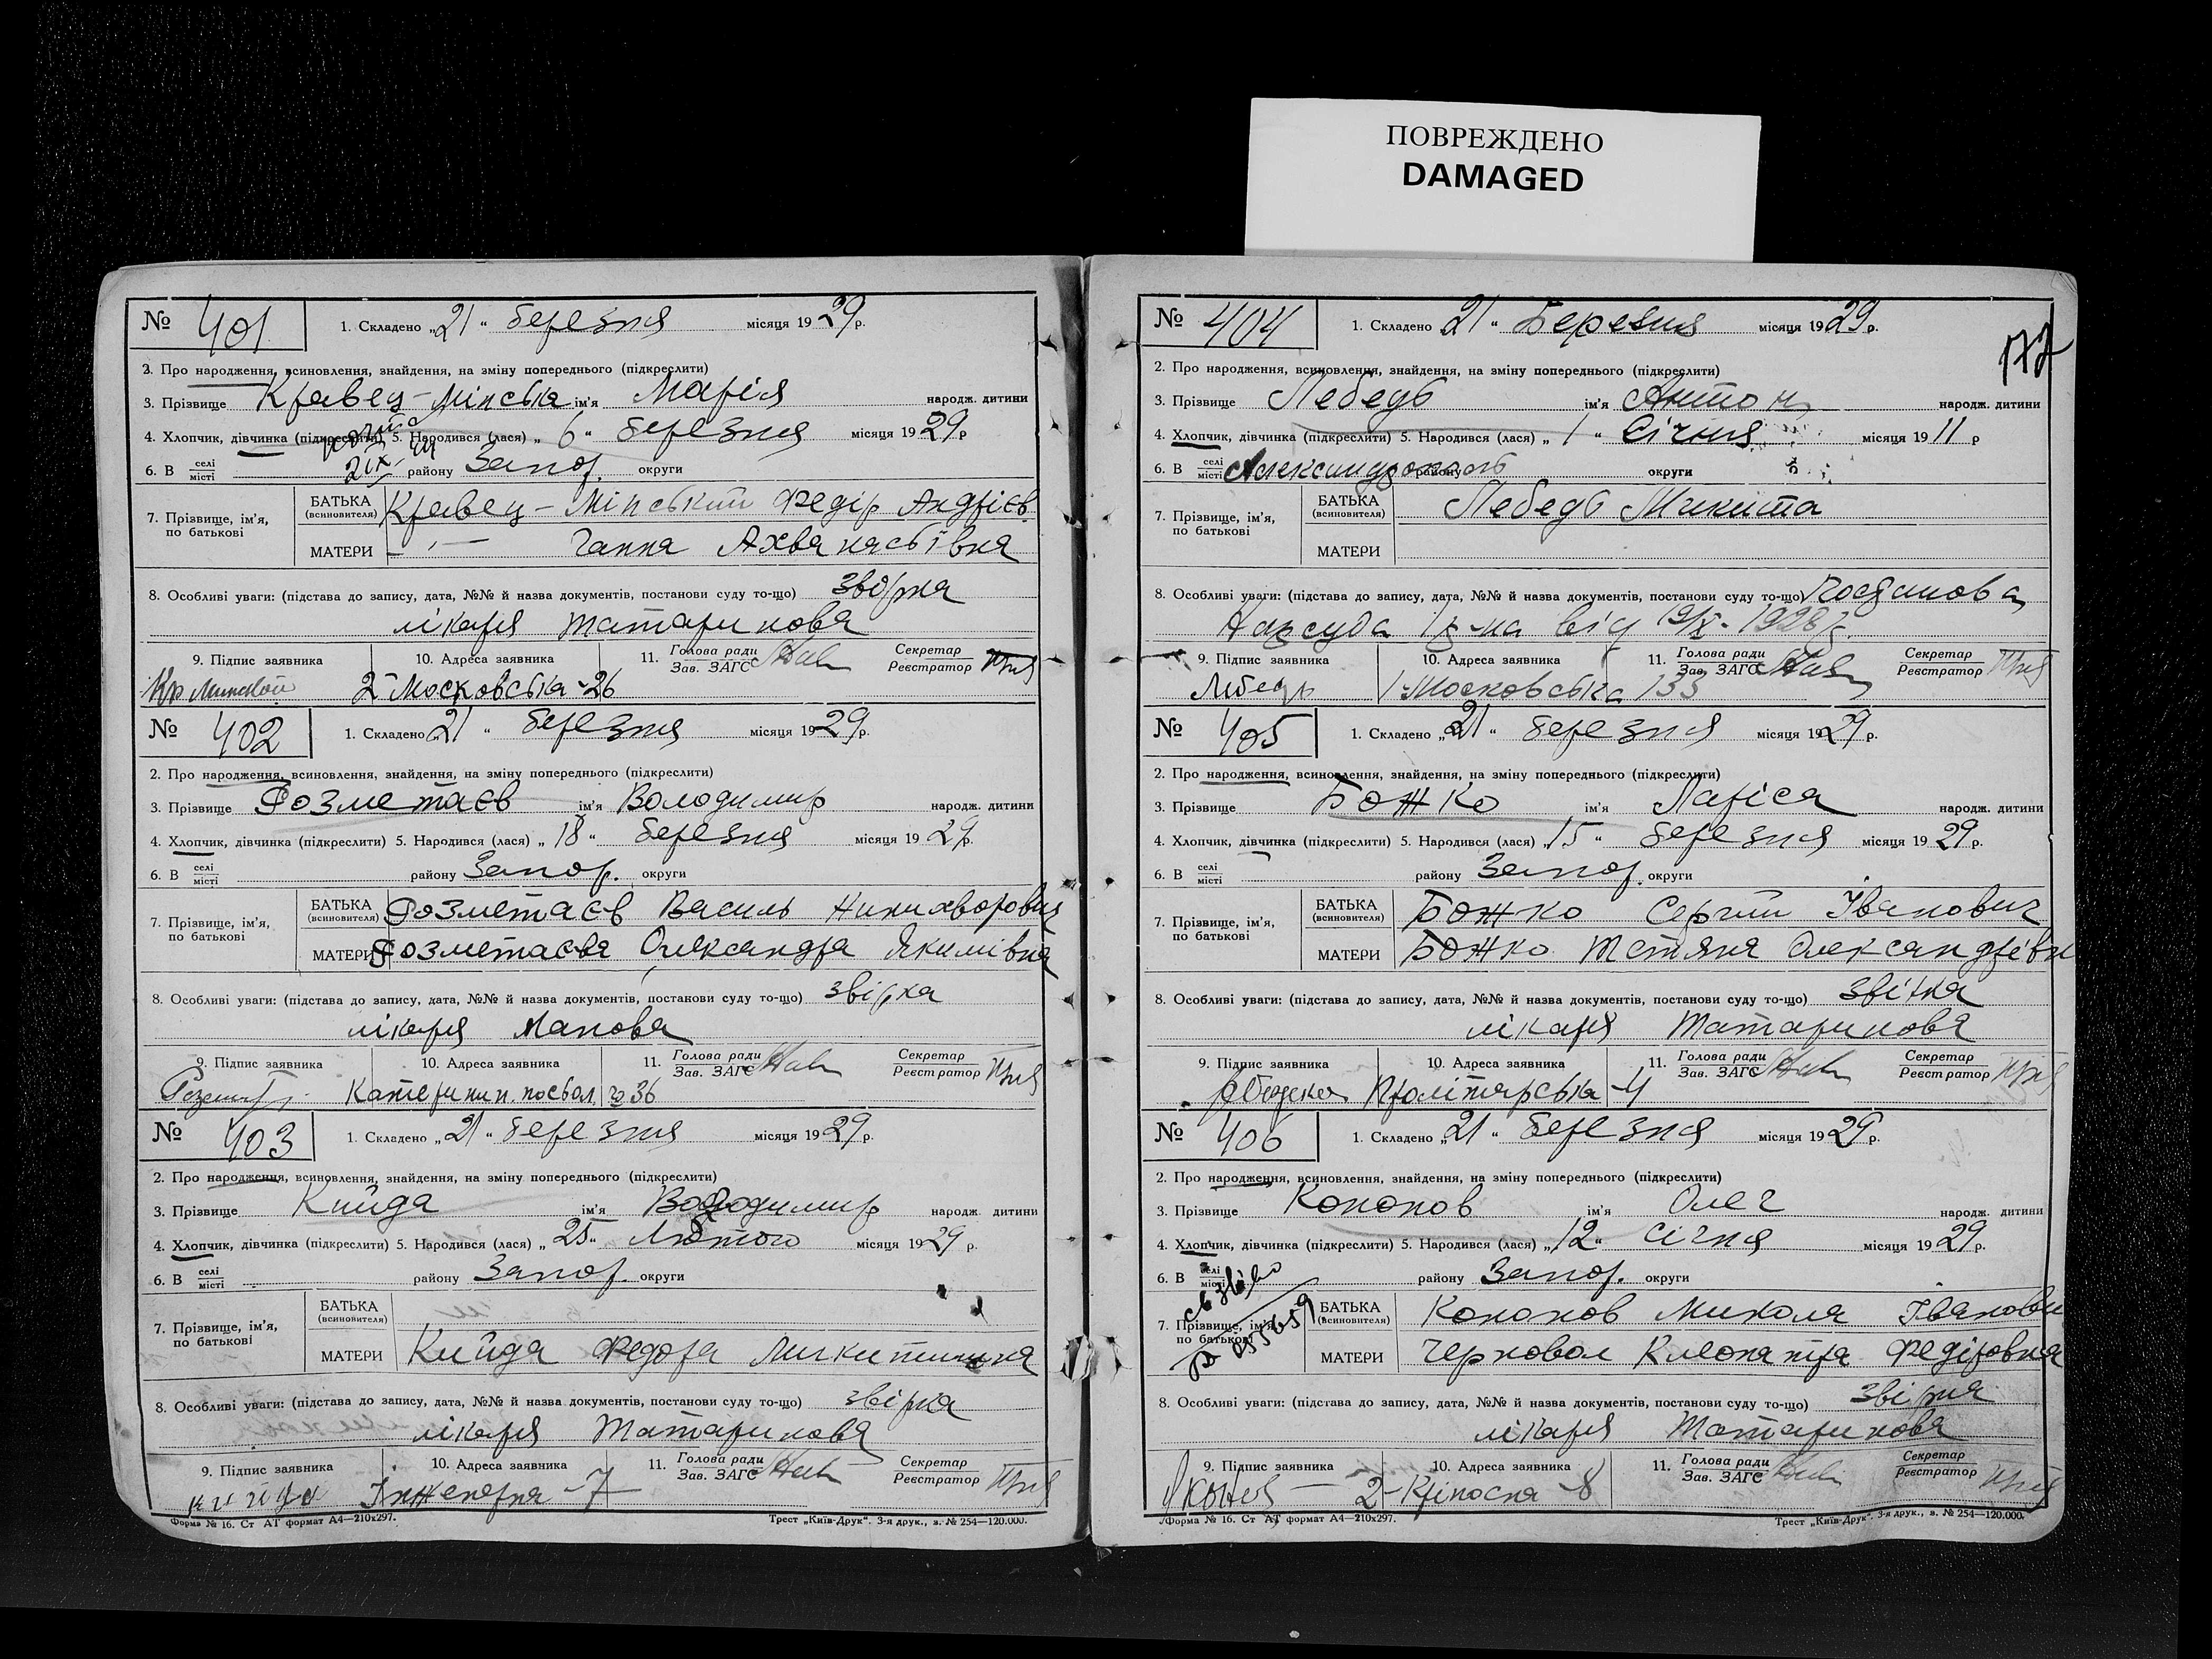 ПОВРЕЖДЕНО
DAMAGED
№ 401 1. Складено „21“ березня місяця 1929 р.
2. Про народження, всиновлення, знайдення, на зміну попереднього (підкреслити)
3. Прізвище Кравец-Мінська ім'я Марія народж. дитини
4. Хлопчик, дівчинка (підкреслити) 5. Народився (лася) „6“ березня місяця 1929 р
6. В селі місті району Запор. округи
7. Прізвище, ім'я, по батькові
БАТЬКА (всиновителя) Кравец-Мінський Федір Андрієв
МАТЕРИ -"- Ганна Ахванасьівна
8. Особливі уваги: (підстава до запису, дата, №№ й назва документів, постанови суду то-що) звірка
лікаря Татаринова
9. Підпис заявника 10. Адреса заявника 11. Голова ради Зав. ЗАГС Секретар Реєстратор
Кр Минской 2 Московська-26
№ 402 1. Складено „21“ березня місяця 1929 р.
2. Про народження, всиновлення, знайдення, на зміну попереднього (підкреслити)
3. Прізвище Розметаєв ім'я Володимир народж. дитини
4. Хлопчик, дівчинка (підкреслити) 5. Народився (лася) „18“ березня місяця 1929 р.
6. В селі місті району Запор. округи
7. Прізвище, ім'я, по батькові
БАТЬКА (всиновителя) Розметаєв Василь Никихворович
МАТЕРИ Розметаєва Олександра Якимівна
8. Особливі уваги: (підстава до запису, дата, №№ й назва документів, постанови суду то-що) звірка
лікаря Манова
9. Підпис заявника 10. Адреса заявника 11. Голова ради Зав. ЗАГС Секретар Реєстратор
Катеринин. посьол. № 36
№ 403 1. Складено „21“ березня місяця 1929 р.
2. Про народження, всиновлення, знайдення, на зміну попереднього (підкреслити)
3. Прізвище Кийда ім'я Володимир народж. дитини
4. Хлопчик, дівчинка (підкреслити) 5. Народився (лася) „25“ Лютого місяця 1929 р.
6. В селі місті району Запор. округи
7. Прізвище, ім'я, по батькові
БАТЬКА (всиновителя)
МАТЕРИ Кийда Федора Микитишна
8. Особливі уваги: (підстава до запису, дата, №№ й назва документів, постанови суду то-що) звірка
лікаря Татаринова
9. Підпис заявника 10. Адреса заявника 11. Голова ради Зав. ЗАГС Секретар Реєстратор
кийда Інженерна -7-
Форма № 16. Ст АТ формат А4—210х297. Трест „Київ-Друк". 3-я друк., з. № 254—120.000.
№ 404 1. Складено „21“ Березня місяця 1929 р.
177
2. Про народження, всиновлення, знайдення, на зміну попереднього (підкреслити)
3. Прізвище Лебедь ім'я Антон народж. дитини
4. Хлопчик, дівчинка (підкреслити) 5. Народився (лася) „1“ Січня місяця 1911 р
6. В селі місті Александрополь району округи
7. Прізвище, ім'я, по батькові
БАТЬКА (всиновителя) Лебедь Микита
МАТЕРИ
8. Особливі уваги: (підстава до запису, дата, №№ й назва документів, постанови суду то-що) Постанова
Нарсуда від 1928 р.
9. Підпис заявника 10. Адреса заявника 11. Голова ради Зав. ЗАГС Секретар Реєстратор
Лебедь 1-Московська 133
№ 405 1. Складено „21“ березня місяця 1929 р.
2. Про народження, всиновлення, знайдення, на зміну попереднього (підкреслити)
3. Прізвище Божко ім'я Лариса народж. дитини
4. Хлопчик, дівчинка (підкреслити) 5. Народився (лася) „15“ березня місяця 1929 р.
6. В селі місті району Запор. округи
7. Прізвище, ім'я, по батькові
БАТЬКА (всиновителя) Божко Сергій Іванович
МАТЕРИ Божко Тетяна Олександрівн
8. Особливі уваги: (підстава до запису, дата, №№ й назва документів, постанови суду то-що) звірка
лікаря Татаринова
9. Підпис заявника 10. Адреса заявника 11. Голова ради Зав. ЗАГС Секретар Реєстратор
Пролітарська -4
№ 406 1. Складено „21“ березня місяця 1929 р.
2. Про народження, всиновлення, знайдення, на зміну попереднього (підкреслити)
3. Прізвище Кононов ім'я Олег народж. дитини
4. Хлопчик, дівчинка (підкреслити) 5. Народився (лася) „12“ січня місяця 1929 р.
6. В селі місті району Запор. округи
7. Прізвище, ім'я, по батькові
БАТЬКА (всиновителя) Кононов Микола Іванович
МАТЕРИ Черновол Клеопатра Федіровна
8. Особливі уваги: (підстава до запису, дата, №№ й назва документів, постанови суду то-що) звірка
лікаря Татаринова
9. Підпис заявника 10. Адреса заявника 11. Голова ради Зав. ЗАГС Секретар Реєстратор
2-Кріпосна -8
Форма № 16. Ст АТ формат А4—210х297. Трест „Київ-Друк". 3-я друк., в. № 254—120.000.